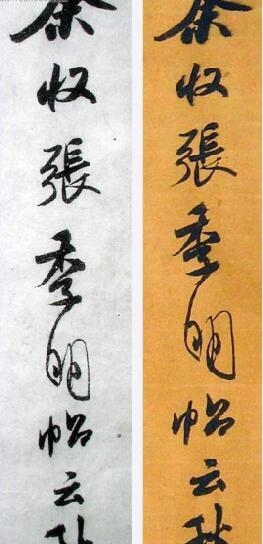 余收張季明帖云
余收張季明帖云